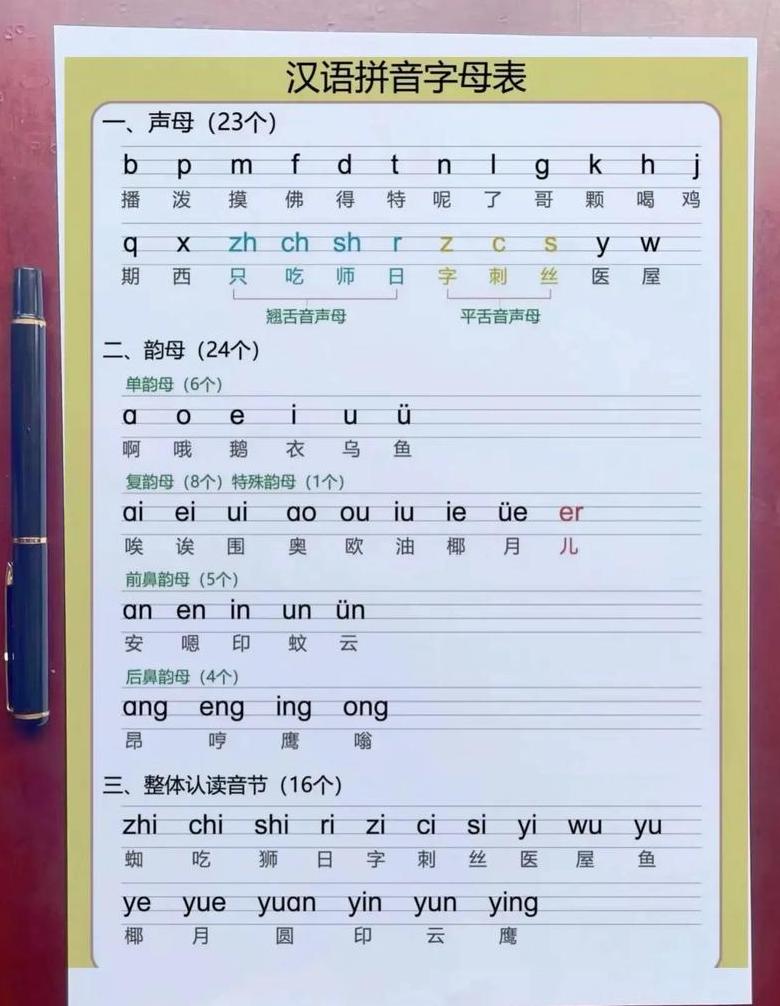 汉语拼音字母表
一、声母（23个）
b p m f d t n l g k h j
播 泼 摸 佛 得 特 呢 了 哥 颗 喝 鸡
q x zh ch sh r z c s y w
期 西 只 吃 师 日 字 刺 丝 医 屋
翘舌音声母 平舌音声母
二、韵母（24个）
单韵母（6个）
ɑ o e i u ü
啊 哦 鹅 衣 乌 鱼
复韵母（8个）特殊韵母（1个）
ɑi ei ui ɑo ou iu ie üe er
唉 诶 围 奥 欧 油 椰 月 儿
前鼻韵母（5个）
ɑn en in un ün
安 嗯 印 蚊 云
后鼻韵母（4个）
ɑng eng ing ong
昂 哼 鹰 嗡
三、整体认读音节（16个）
zhi chi shi ri zi ci si yi wu yu
蜘 吃 狮 日 字 刺 丝 医 屋 鱼
ye yue yuɑn yin yun ying
椰 月 圆 印 云 鹰